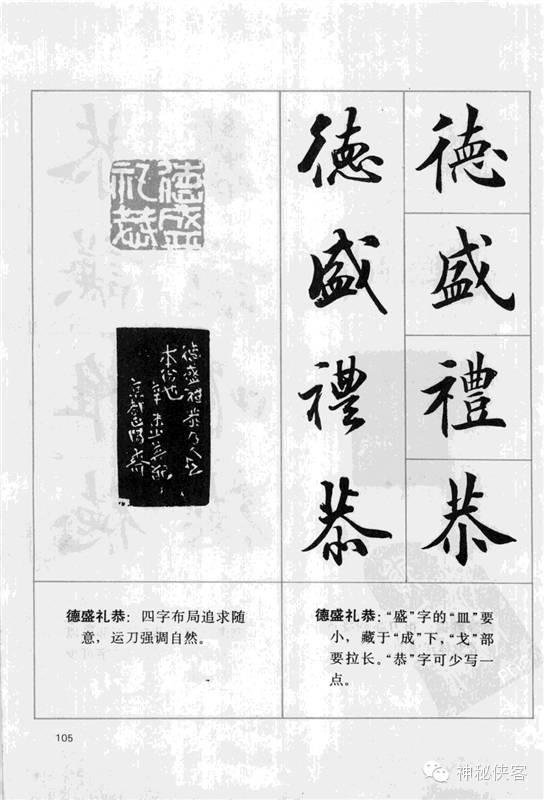 德
盛
禮
恭
德
盛
禮
恭
德盛
礼恭
德盛禮恭乃人之
本德也
德盛礼恭：四字布局追求随
意，运刀强调自然。
德盛礼恭：“盛”字的“皿”要
小，藏于“成”下，“戈”部
要拉长。“恭”字可少写一
点。
105
神秘侠客